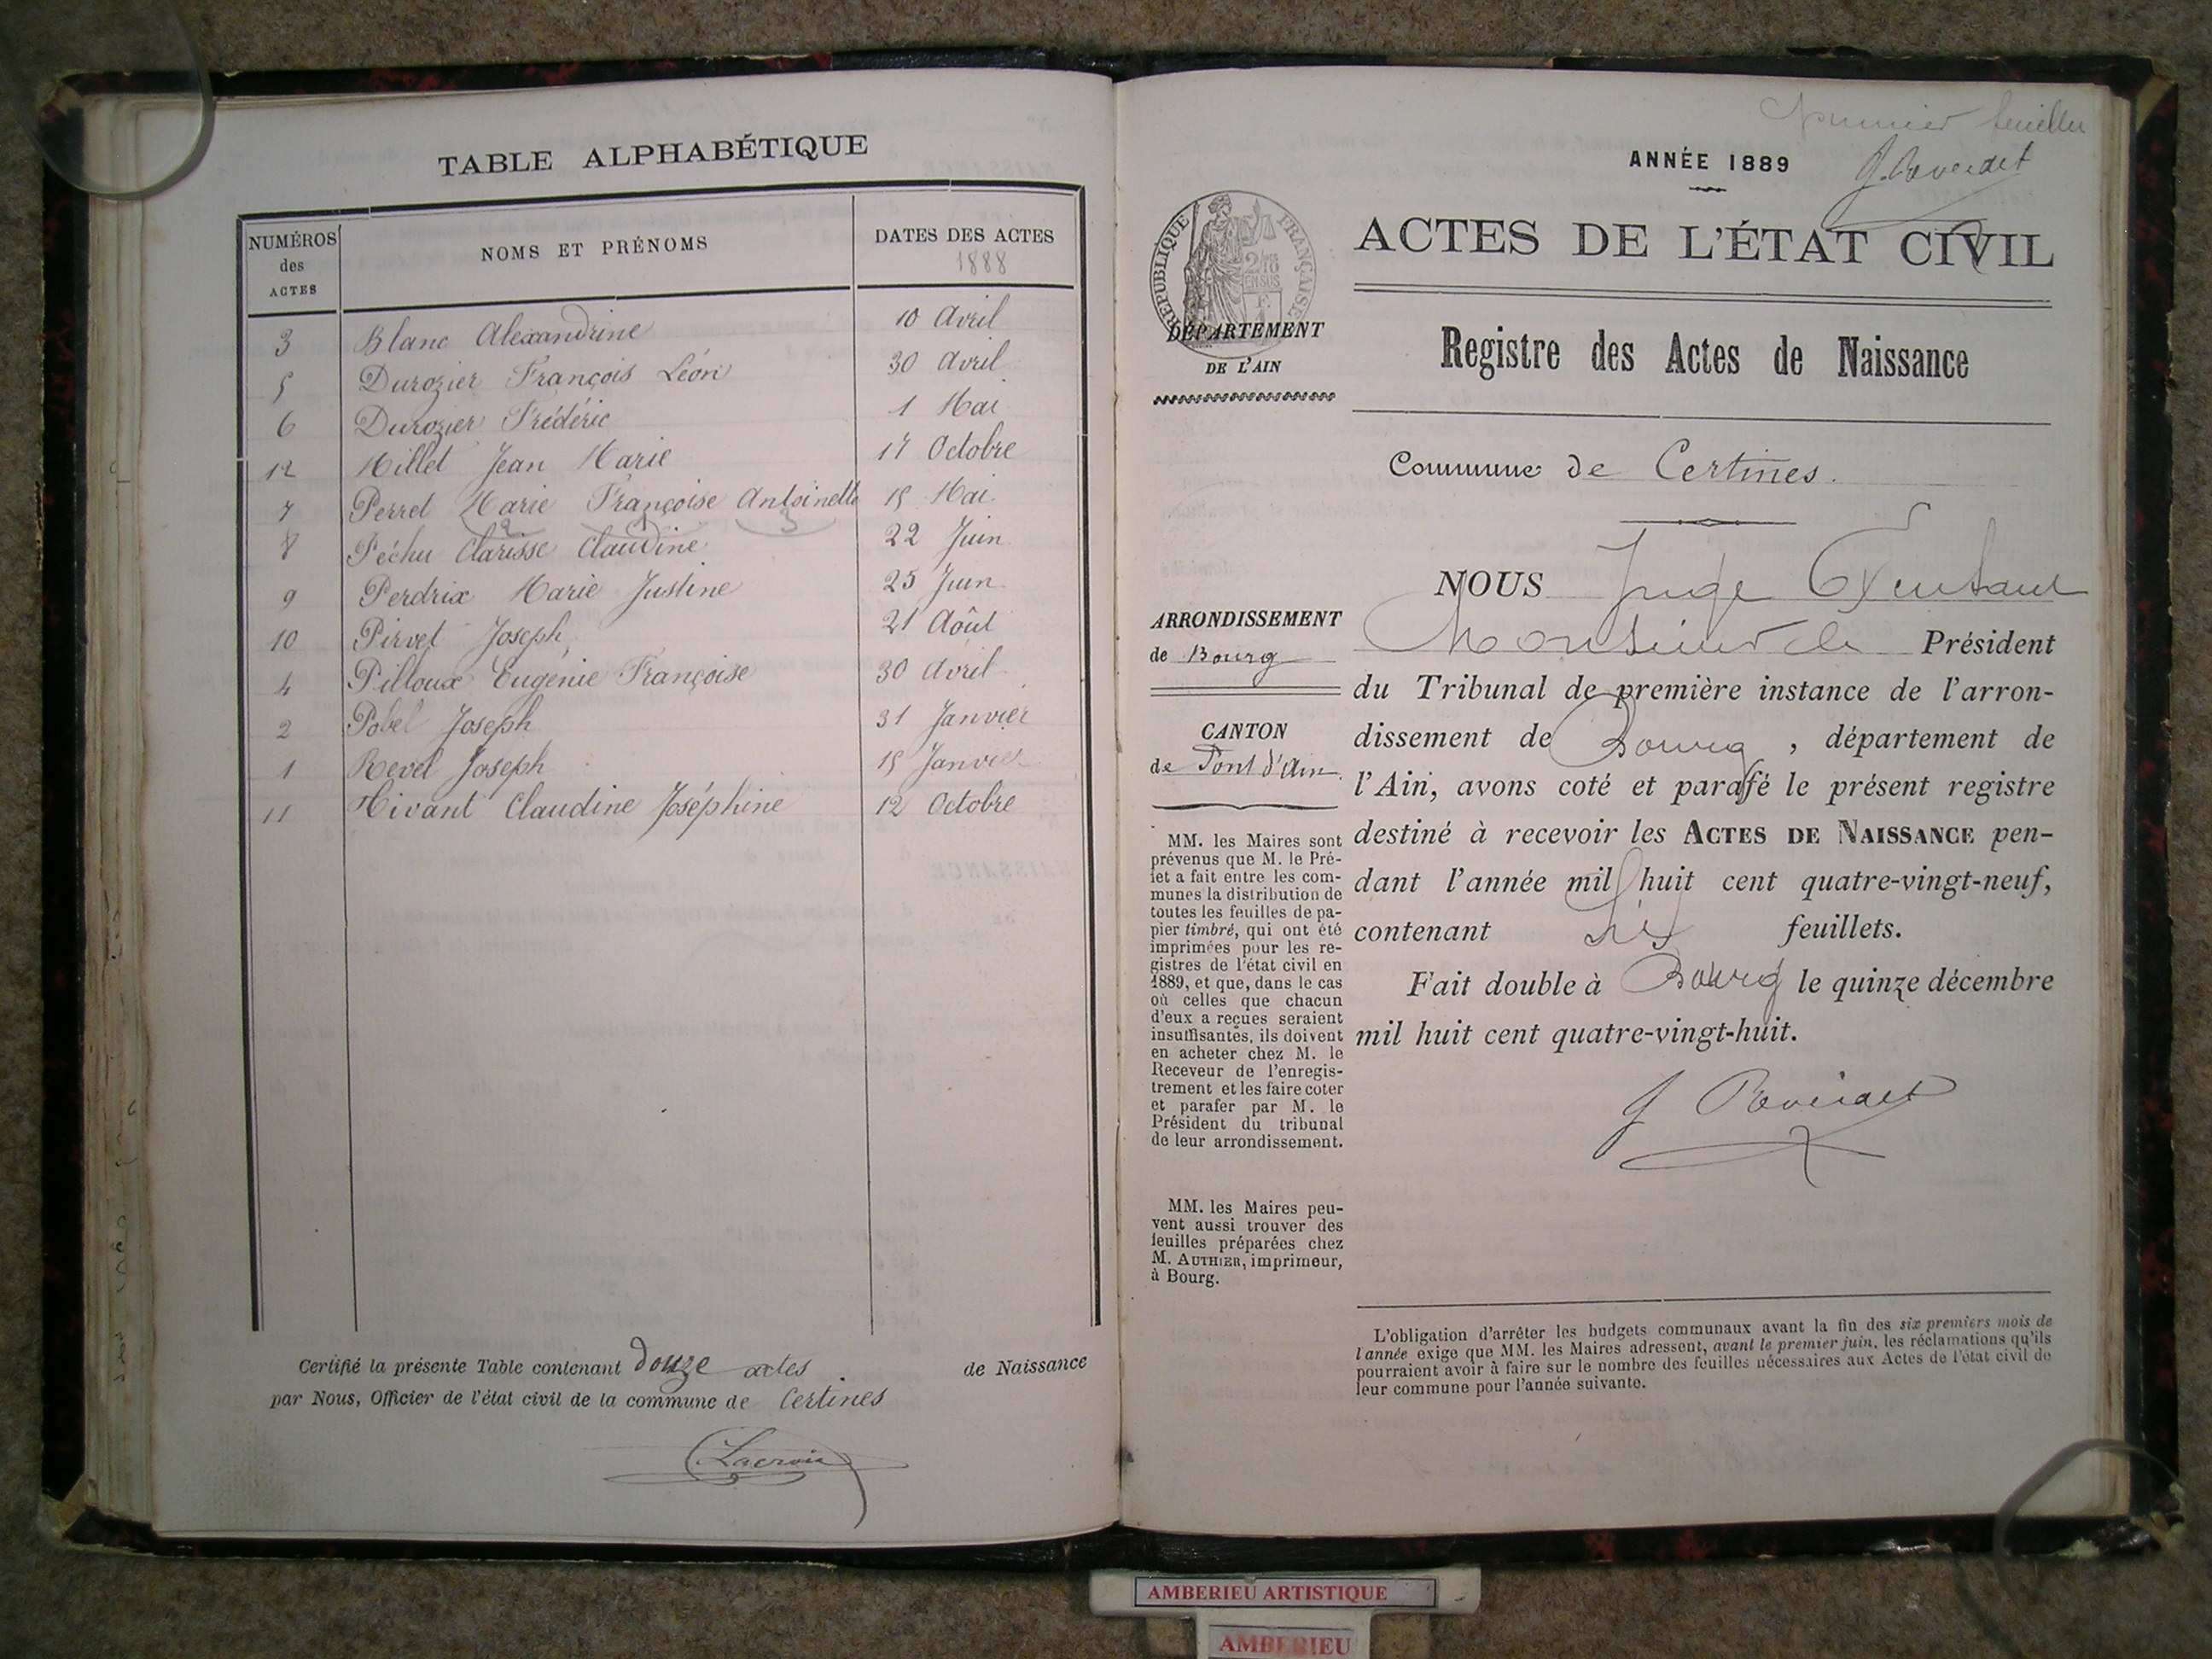 TABLE ALPHABÉTIQUE
NUMÉROS des ACTES
NOMS ET PRÉNOMS
DATES DES ACTES
1888
3 Blanc Alexandrine 10 Avril
5 Durozier François Léon 30 Avril
6 Durozier Frédéric 1 Mai
12 Millet Jean Marie 17 Octobre
7 Perret Marie Françoise Antoinette 15 Mai
2 1 3
8 Péchu Clarisse Claudine 22 Juin
9 Perdrix Marie Justine 25 Juin
10 Pirvet Joseph 21 Août
4 Pilloux Eugénie Françoise 30 Avril
2 Pobel Joseph 31 Janvier
1 Revel Joseph 15 Janvier
11 Vivant Claudine Joséphine 12 Octobre
Certifié la présente Table contenant douze actes de Naissance
par Nous, Officier de l'état civil de la commune de Certines
Lacroix
premier feuillet
ANNÉE 1889
RÉPUBLIQUE FRANÇAISE
ACTES DE L'ÉTAT CIVIL
DÉPARTEMENT
DE L'AIN
Registre des Actes de Naissance
Commune de Certines.
ARRONDISSEMENT
de Bourg
CANTON
de Pont d'Ain
MM. les Maires sont
prévenus que M. le Pré-
fet a fait entre les com-
munes la distribution de
toutes les feuilles de pa-
pier timbré, qui ont été
imprimées pour les re-
gistres de l'état civil en
1889, et que, dans le cas
où celles que chacun
d'eux a reçues seraient
insuffisantes, ils doivent
en acheter chez M. le
Receveur de l'enregis-
trement et les faire coter
et parafer par M. le
Président du tribunal
de leur arrondissement.
MM. les Maires peu-
vent aussi trouver des
feuilles préparées chez
M. AUTHIER, imprimeur,
à Bourg.
NOUS Juge
Monsieur le Président
du Tribunal de première instance de l'arron-
dissement de Bourg, département de
l'Ain, avons coté et parafé le présent registre
destiné à recevoir les ACTES DE NAISSANCE pen-
dant l'année mil huit cent quatre-vingt-neuf,
contenant six feuillets.
Fait double à Bourg le quinze décembre
mil huit cent quatre-vingt-huit.
L'obligation d'arrêter les budgets communaux avant la fin des six premiers mois de
l'année exige que MM. les Maires adressent, avant le premier juin, les réclamations qu'ils
pourraient avoir à faire sur le nombre des feuilles nécessaires aux Actes de l'état civil de
leur commune pour l'année suivante.
AMBERIEU ARTISTIQUE
AMBERIEU